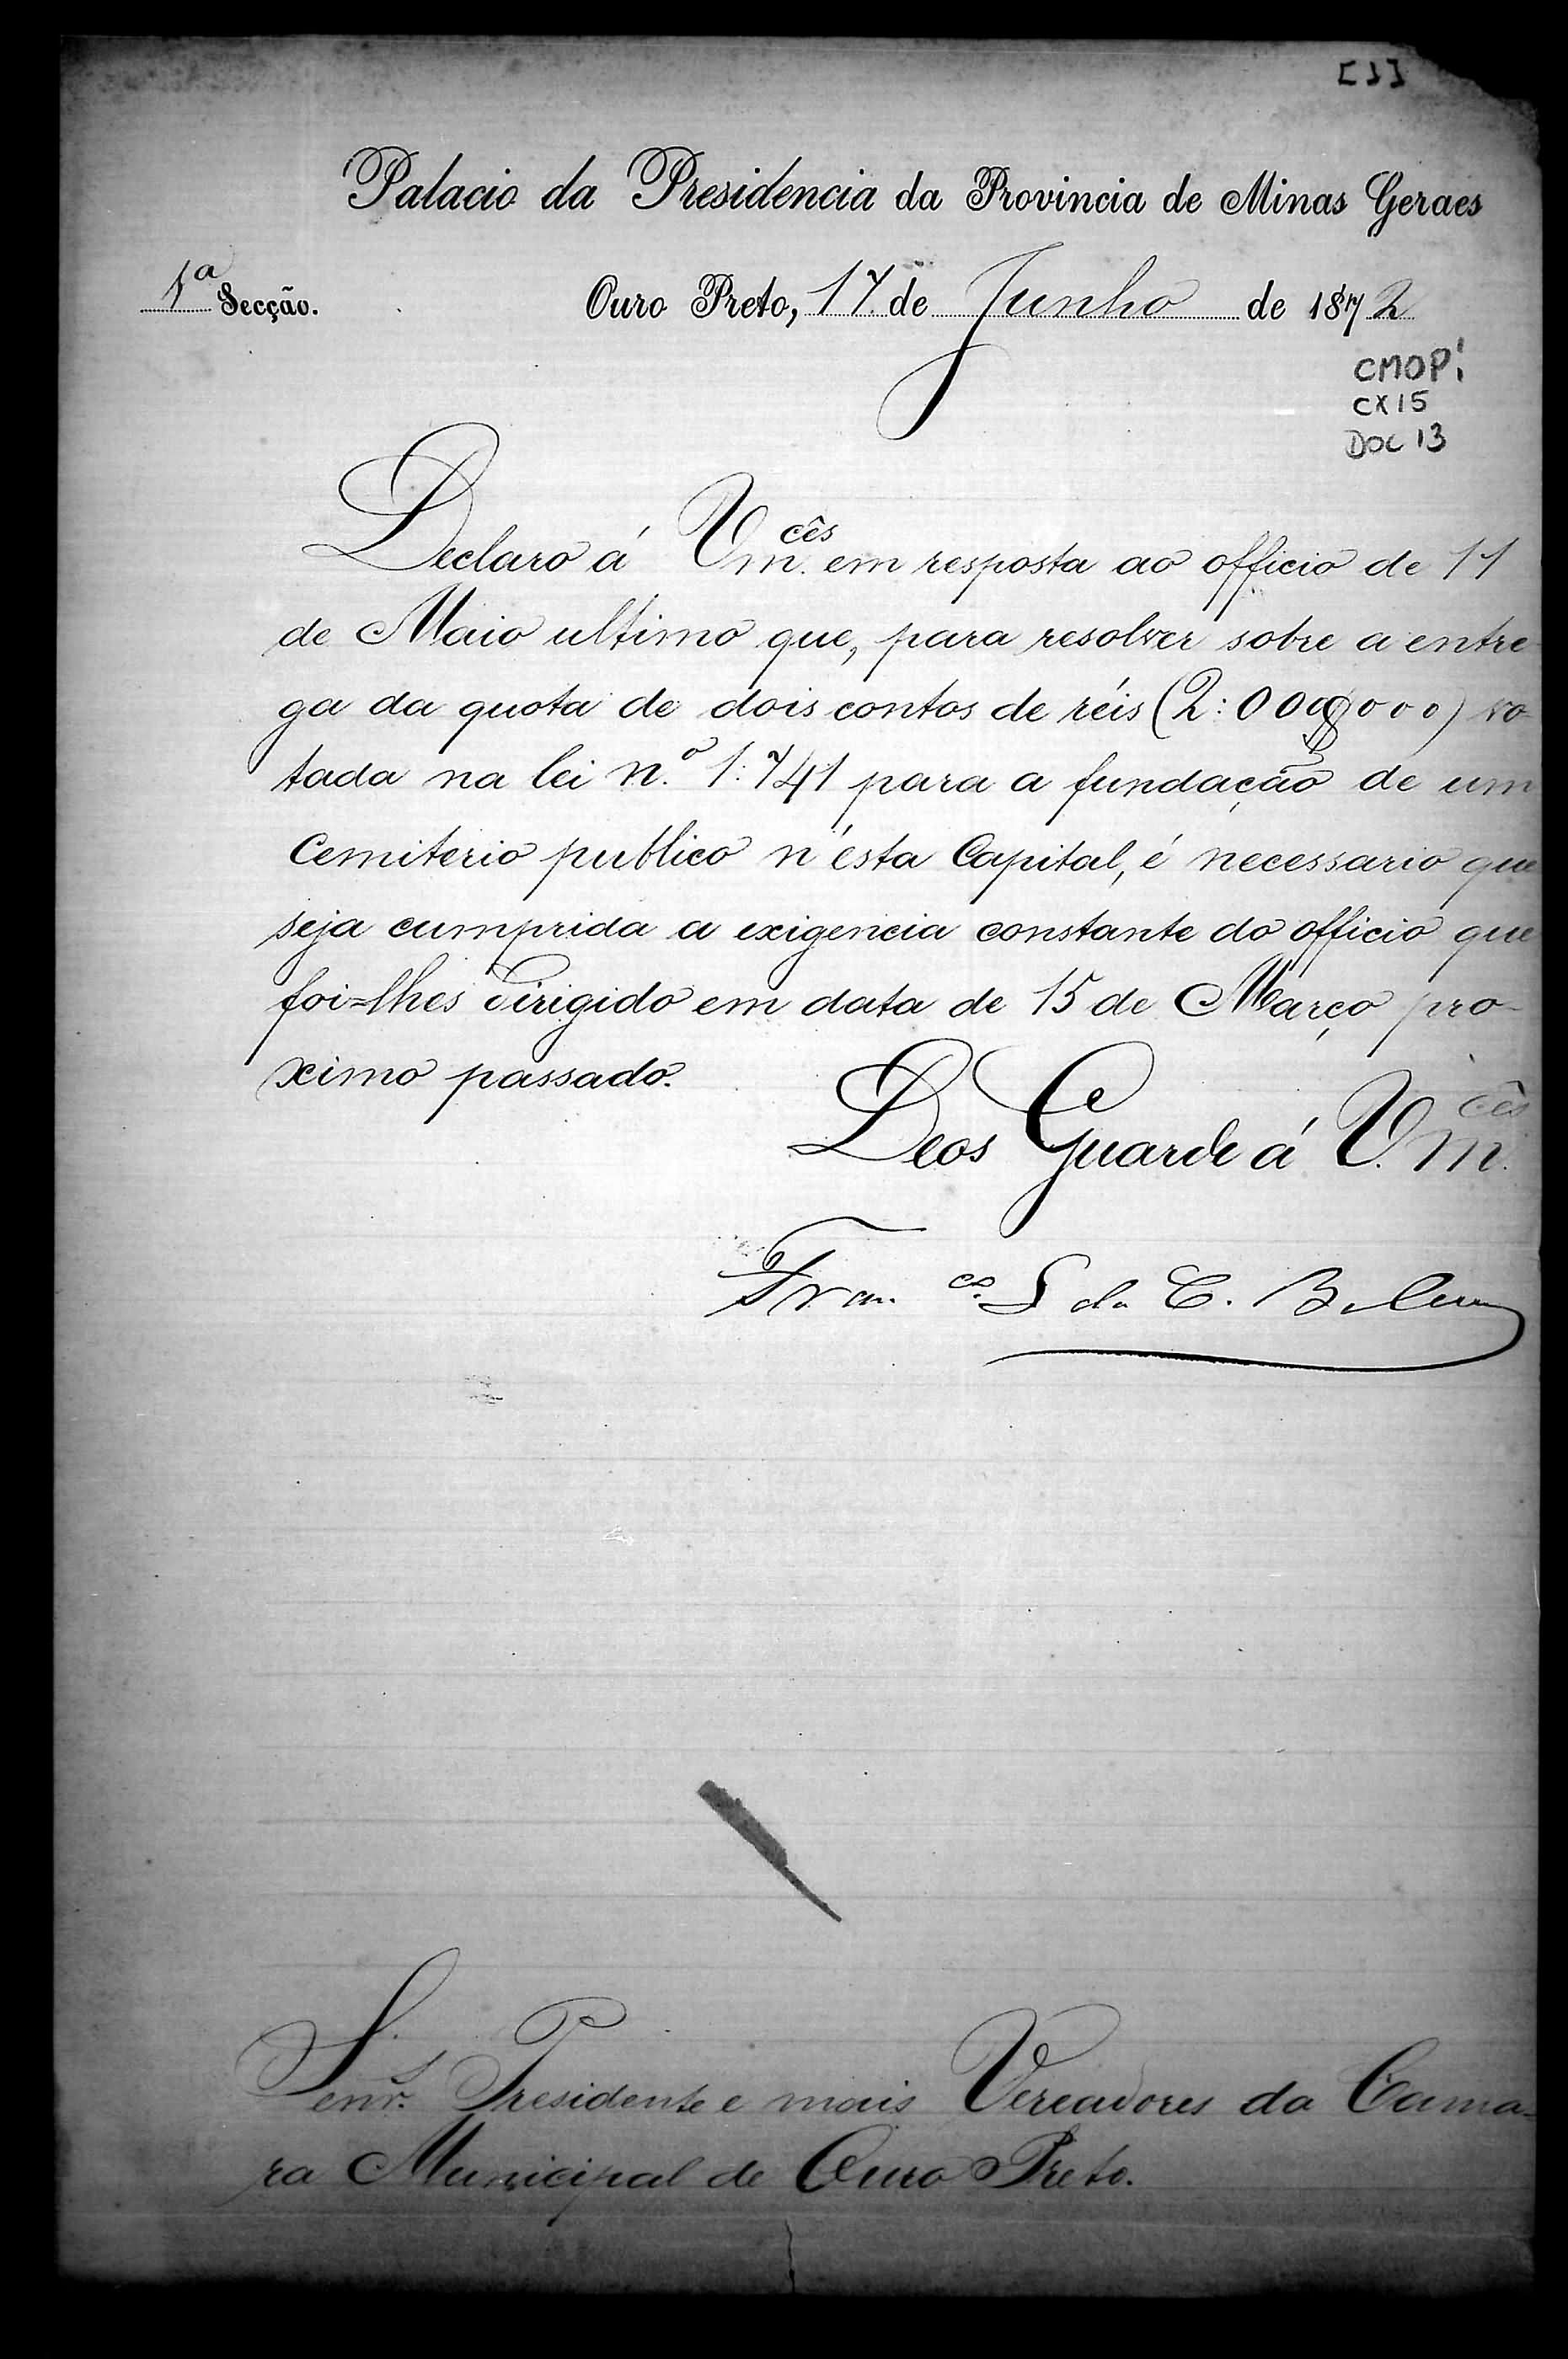 [1]
Palacio da Presidencia da Provincia de Minas Geraes
1ª Secção.
Ouro Preto, 17 de Junho de 1872
CMOP:
CX15
DOC 13
Declaro á Vm.cês em resposta ao officio de 11
de Maio ultimo que, para resolver sobre a entre-
ga da quota de dois contos de réis (2:000$000) vo-
tada na lei n.º 1:741 para a fundação de um
Cemiterio publico n'ésta Capital, é necessario que
seja cumprida a exigencia constante do officio que
foi=lhes dirigido em data de 15 de Março pro-
ximo passado.
Deos Guarde á V.M.cês
Fran.co L da C. Belem
Senr.s Presidente e mais Vereadores da Cama-
ra Municipal de Ouro Preto.